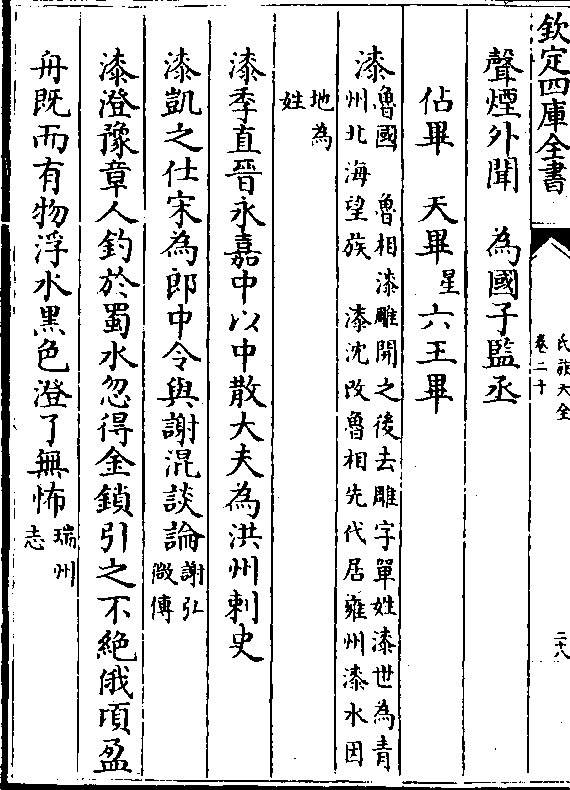 欽定四庫全書
氏族大全
卷二十
二十八
聲煙外聞　為國子監丞
佔畢　天畢星　六王畢
漆魯國　魯相漆雕開之後去雕字單姓漆世為青
州北海望族　漆沈改魯相先代居雍州漆水因
地為
姓
漆季直晉永嘉中以中散大夫為洪州刺史
漆凱之仕宋為郎中令與謝混談論謝弘
微傳
漆澄豫章人釣於蜀水忽得金鎖引之不絕俄頃盈
舟既而有物浮水黑色澄了無怖瑞州
志